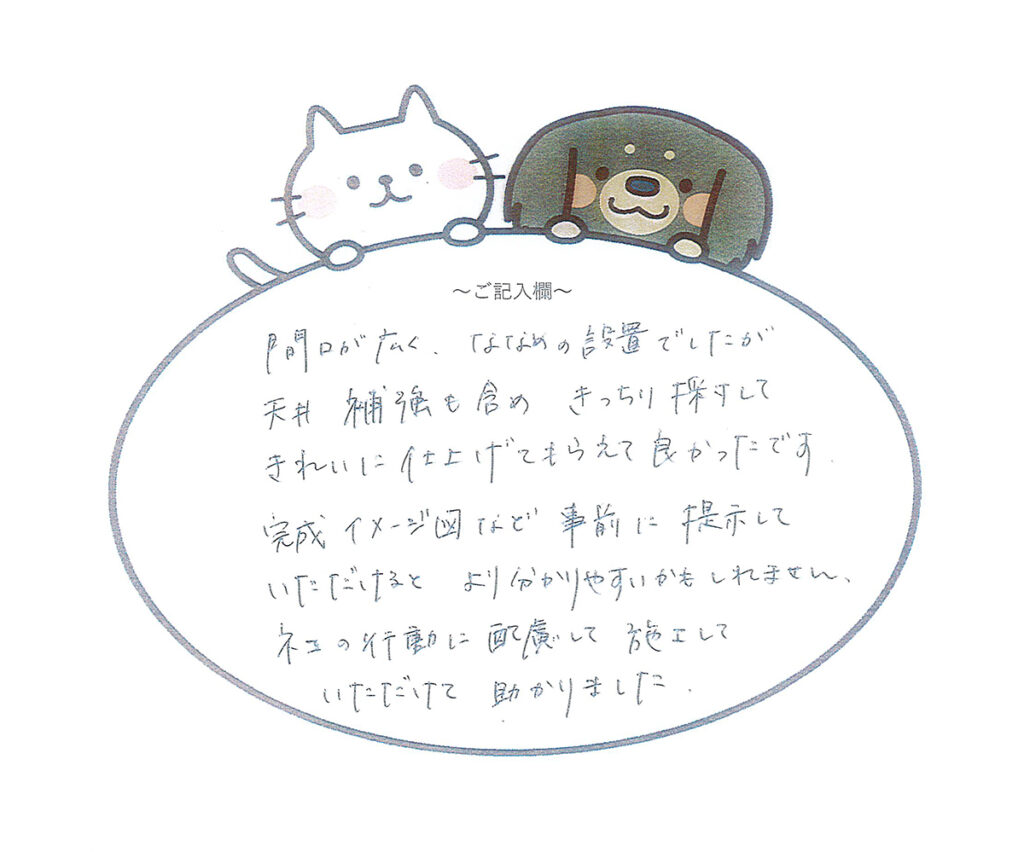 ～ご記入欄～
間口が広く、ななめの設置でしたが
天井 補強も含め きっちり採寸して
きれいに仕上げてもらえて良かったです.
完成イメージ図など 事前に 提示して
いただけると より分かりやすいかもしれません、
ネコの行動に配慮して 施工して
いただけて 助かりました.